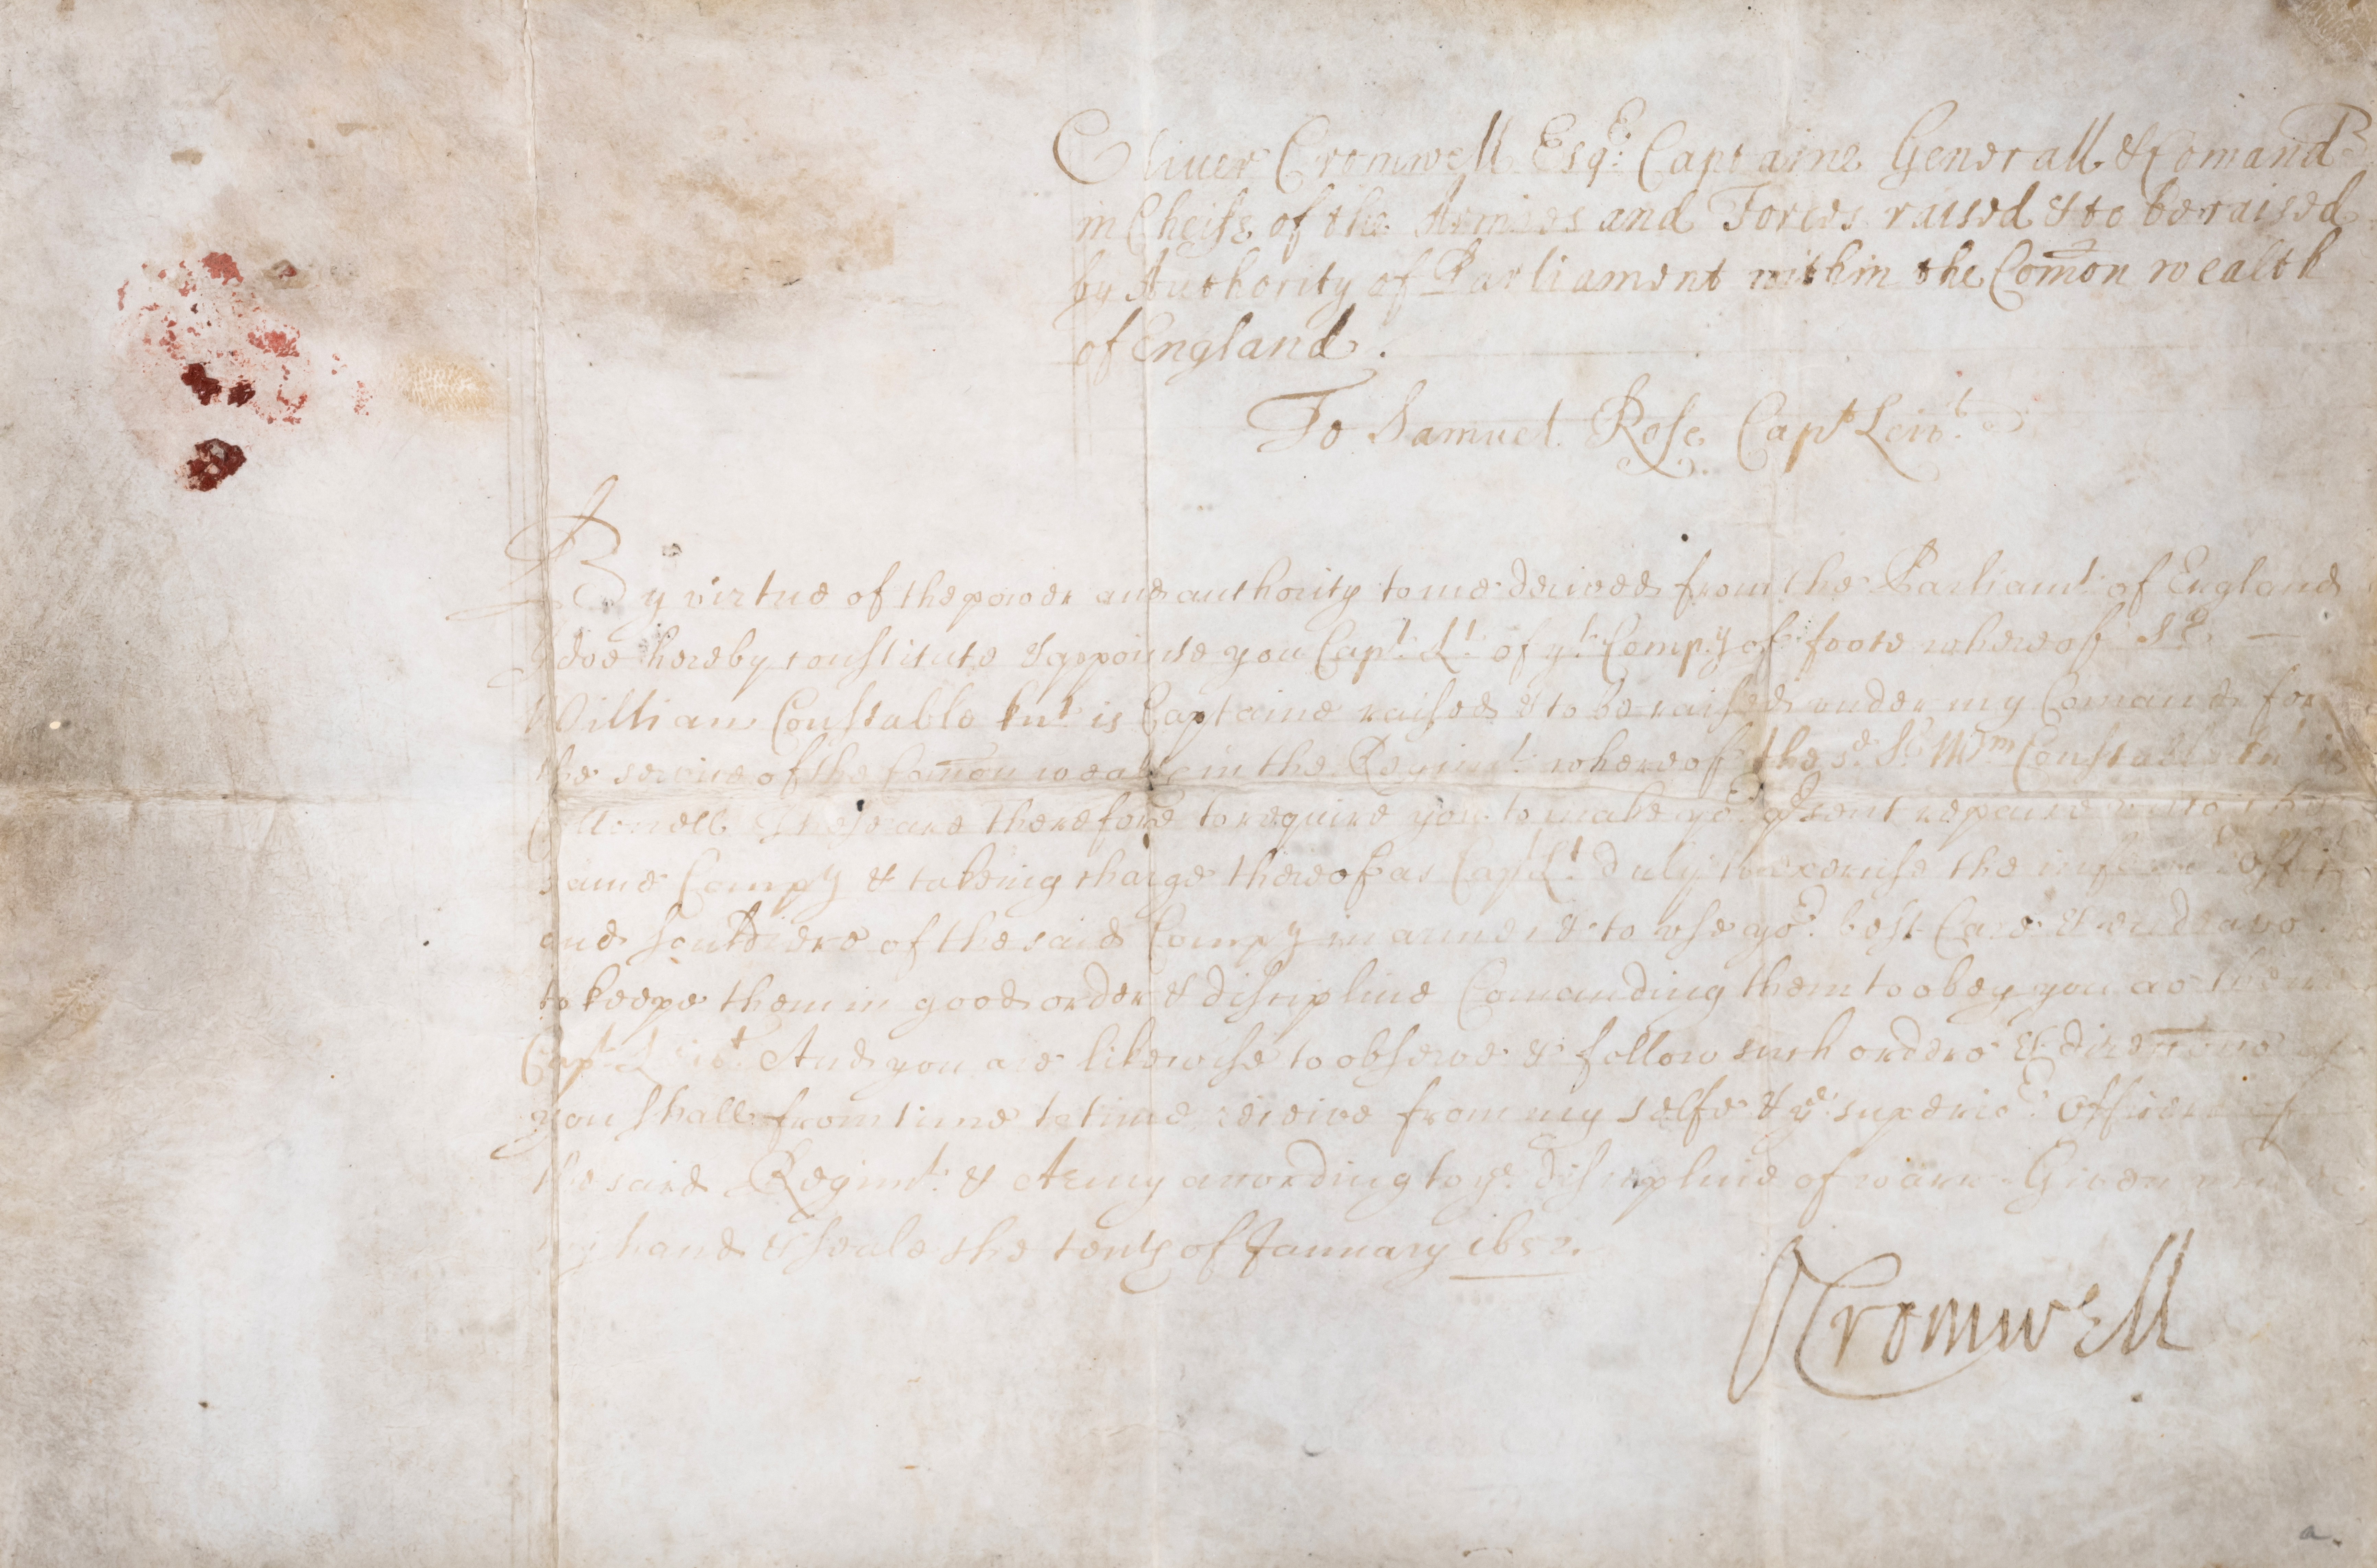 Oliver Cromwell Esqr: Captaine Generall & Comandr
in Cheife of the Armies and Forces raised & to be raised
by Authority of Parliament within the Comon wealth
of England.
To Samuel Rose Capt Leivt.
By virtue of the power and authority to me derived from the Parliamt. of England
I doe hereby constitute & appointe you Capt. Lt. of yt. Compy of foote whereof Sr.
William Constable knt is Captaine raised & to be raised under my Comand for
the service of the Comon wealth in the Regimt. whereof the sd. Sr. Wm Constable knt is
Collonell These are therefore to require you to make yor. psent repaire unto the
same Compy & takeing charge thereof as Capt Lt. duly to exercise the inferior
and Souldiers of the said Compy in armes & to use yor. best Care & endeavor
to keepe them in good order & discipline Comanding them to obey you as their
Capt Leivt. And you are likewise to observe & follow such orders & directions as
you shall from time to time receive from my selfe & ye superior. Officers of
the said Regimt. & Army according to ye. discipline of warr Given under
my hand & seale the tenth of January 1652.
OCromwell
a.